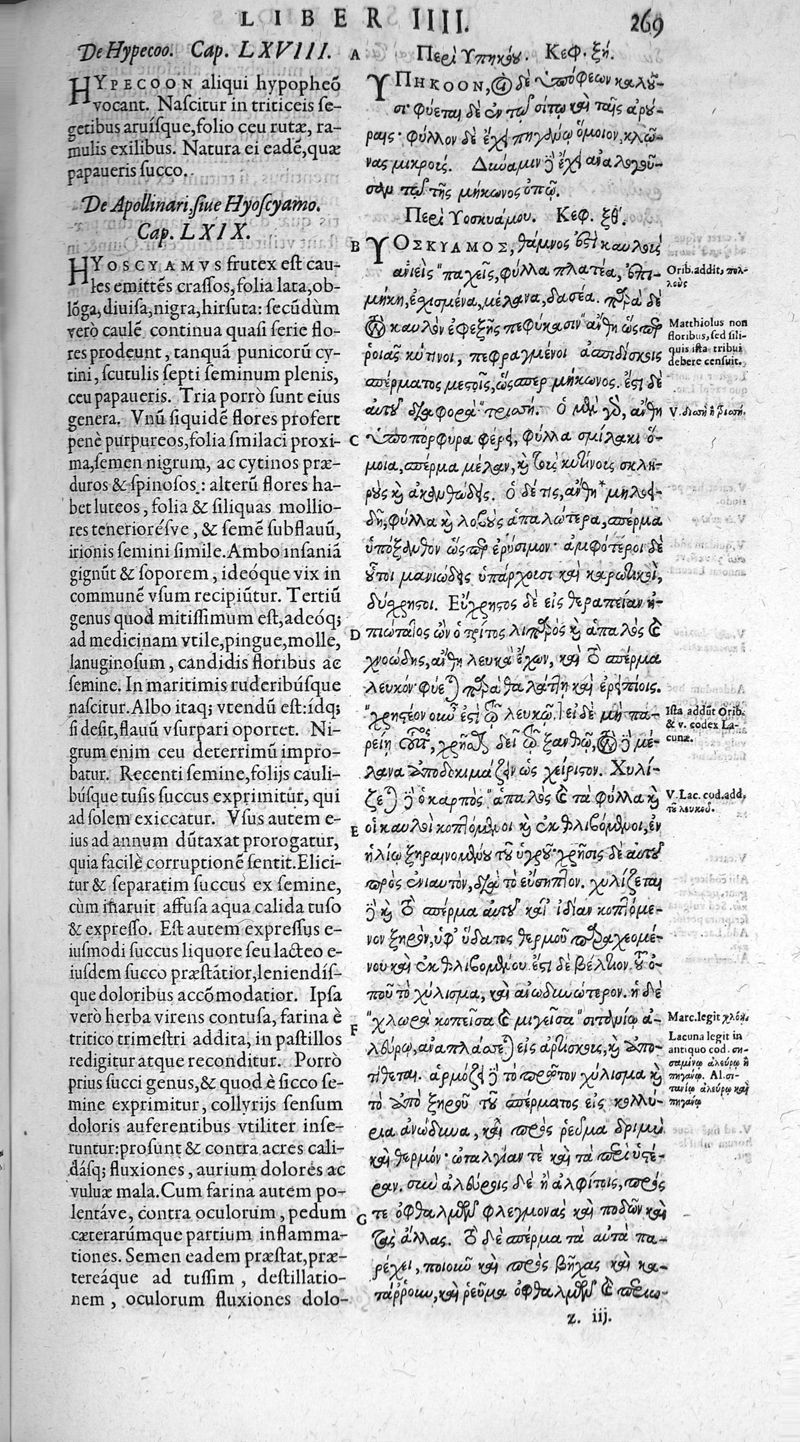 LIBER IIII. 269
De Hypecoo. Cap. LXVIII.
HYPECOON aliqui hypopheō
vocant. Nascitur in triticeis se-
getibus aruísque, folio ceu rutæ, ra-
mulis exilibus. Natura ei eadē, quæ
papaueris succo.
De Apollinari, siue Hyoscyamo.
Cap. LXIX.
HYOSCYAMVS frutex est cau-
les emittēs crassos, folia lata, ob-
lōga, diuisa, nigra, hirsuta: secūdùm
verò caulē continua quasi serie flo-
res prodeunt, tanquā punicorū cy-
tini, scutulis septi seminum plenis,
ceu papaueris. Tria porrò sunt eius
genera. Vnū siquidē flores profert
penè purpureos, folia smilaci proxi-
ma, semen nigrum, ac cytinos præ-
duros & spinosos: alterū flores ha-
bet luteos, folia & siliquas mollio-
res tenerioréſve, & semē subflauū,
irionis semini simile. Ambo insaniā
gignūt & soporem, ideóque vix in
communē vsum recipiūtur. Tertiū
genus quod mitissimum est, adeóq;
ad medicinam vtile, pingue, molle,
lanuginosum, candidis floribus ac
semine. In maritimis ruderibúsque
nascitur. Albo itaq; vtendū est: idq;
si desit, flauū vsurpari oportet. Ni-
grum enim ceu deterrimū impro-
batur. Recenti semine, folijs cauli-
búsque tusis succus exprimitur, qui
ad solem exiccatur. Vsus autem e-
ius ad annum dūtaxat prorogatur,
quia facilè corruptionē sentit. Elici-
tur & separatim succus ex semine,
cùm inaruit affusa aqua calida tuso
& expresso. Est autem expressus e-
iusmodi succus liquore seu lacteo e-
iusdem succo præstātior, leniendís-
que doloribus accōmodatior. Ipsa
verò herba virens contusa, farina è
tritico trimestri addita, in pastillos
redigitur atque reconditur. Porrò
prius succi genus, & quod è sicco se-
mine exprimitur, collyrijs sensum
doloris auferentibus vtiliter inse-
runtur: prosunt & contra acres cali-
dásq; fluxiones, aurium dolores ac
vuluæ mala. Cum farina autem po-
lentáve, contra oculorum, pedum
cæterarúmque partium inflamma-
tiones. Semen eadem præstat, præ-
tereáque ad tussim, destillatio-
nem, oculorum fluxiones dolo-
A
B
C
D
E
F
G
Περὶ Ὑπηκόου. Κεφ. ξή.
ΥΠΗΚΟΟΝ, οἱ δὲ ὑπόφεων καλοῦ-
σι· φύεται δὲ ἐν τῷ σίτῳ καὶ ταῖς ἀρού-
ραις· φύλλον δὲ ἔχει πηγάνῳ ὅμοιον, κλῶ-
νας μικρούς. Δύναμιν δὲ ἔχει ἀναλογοῦ-
σαν τῷ τῆς μήκωνος ὀπῷ.
Περὶ Υοσκυάμου. Κεφ. ξθ΄.
ΥΟΣΚΥΑΜΟΣ, θάμνος ἐστὶ καυλοὺς
ἀνιεὶς "παχεῖς, φύλλα πλατέα, ἐπι-
μήκη, ἐσχισμένα, μέλανα, δασέα. παρὰ δὲ
τὸν καυλὸν ἐφεξῆς πεφύκασιν "ἄνθη ὥσπερ
ροιᾶς κύτινοι, πεφραγμένοι ἀσπιδίσκοις
σπέρματος μεστοῖς, ὥσπερ μήκωνος. ἔστι δὲ
αὐτοῦ διαφορὰ "τρισσή. Ὁ μὲν γὸ, ἄνθη
ὑποπόρφυρα φέρει, φύλλα σμίλακι ὅ-
μοια, σπέρμα μέλαν, καὶ τοὺς κυτίνους σκλη-
ροὺς καὶ ἀκανθώδεις. Ὁ δέ τις, ἄνθη *μηλοει-
δῆ, φύλλα καὶ λοβοὺς ἁπαλώτερα, σπέρμα
ὑπόξανθον ὥσπερ ἐρύσιμον· ἀμφότεροι δὲ
οὗτοι μανιώδεις ὑπάρχουσι καὶ καρωτικοὶ,
δύσχρηστοι. Εὔχρηστος δὲ εἰς θεραπείαν ἠ-
πιώτατος ὢν ὁ τρίτος λιπαρὸς καὶ ἁπαλὸς καὶ
χνοώδης, ἄνθη λευκὰ ἔχων, καὶ τὸ σπέρμα
λευκόν· φύεται παρὰ θαλάττῃ καὶ ἐρειπίοις.
"χρηστέον οὖν ἐστὶ τῷ λευκῷ.] εἰ δὲ μὴ πα-
ρείη οὗτος, χρῆσθαι δεῖ τῷ ξανθῷ, τὸν δὲ μέ-
λανα ἀποδοκιμάζειν ὡς χείριστον. Χυλί-
ζεται δὲ ὁ καρπὸς "ἁπαλὸς καὶ τὰ φύλλα καὶ
οἱ καυλοὶ κοπτόμενοι καὶ ἐκθλιβόμενοι, ἐν
ἡλίῳ ξηραινομένου τοῦ ὑγροῦ· χρῆσις δὲ αὐτοῦ
πρὸς ἐνιαυτὸν, διὰ τὸ εὔσηπτον. χυλίζεται
δὲ καὶ τὸ σπέρμα αὐτοῦ κατ' ἰδίαν κοπτόμε-
νον ξηρὸν, ὑφ' ὕδατος θερμοῦ παραχεομέ-
νου καὶ ἐκθλιβομένου. ἔστι δὲ βέλτιον τοῦ ὀ-
ποῦ τὸ χύλισμα, καὶ ἀνωδυνώτερον. ἡ δὲ
"χλωρὰ κοπεῖσα καὶ μιγεῖσα "σιτανίῳ ἀ-
λεύρῳ, ἀναπλάσσεται εἰς ἀρτίσκους, καὶ ἀπο-
τίθεται. ἁρμόζει δὲ τὸ πρῶτον χύλισμα καὶ
τὸ ἀπὸ ξηροῦ τοῦ σπέρματος εἰς κολλύ-
ρια ἀνώδυνα, καὶ πρὸς ῥεῦμα δριμὺ
καὶ θερμόν· ὠταλγίαν τε καὶ τὰ περὶ ὑστέ-
ραν. σὺν ἀλεύροις δὲ ἢ ἀλφίτοις, πρός
τε ὀφθαλμῶν φλεγμονὰς καὶ ποδῶν καὶ
τὰς ἄλλας. Τὸ δὲ σπέρμα τὰ αὐτὰ πα-
ρέχει, ποιοῦν καὶ πρὸς βῆχας καὶ κα-
τάρρουν, καὶ ῥεῦμα ὀφθαλμῶν καὶ περιω-
z. iij.
Orib. addit, πολ-
λούς
Matthiolus non
floribus, sed sili-
quis ista tribui
debere censuit.
V. δισσὴ ἢ βισσή.
Ista addūt Orib.
& v. codex La-
cunæ.
V. Lac. cod. add,
τοῦ λευκοῦ.
Marc. legit χλόη.
Lacuna legit in
antiquo cod. ση-
σαμίνῳ ἀλεύρῳ ἢ
πηγάνῳ. Al. σι-
τανίῳ ἀλεύρῳ καὶ
πηγάνῳ